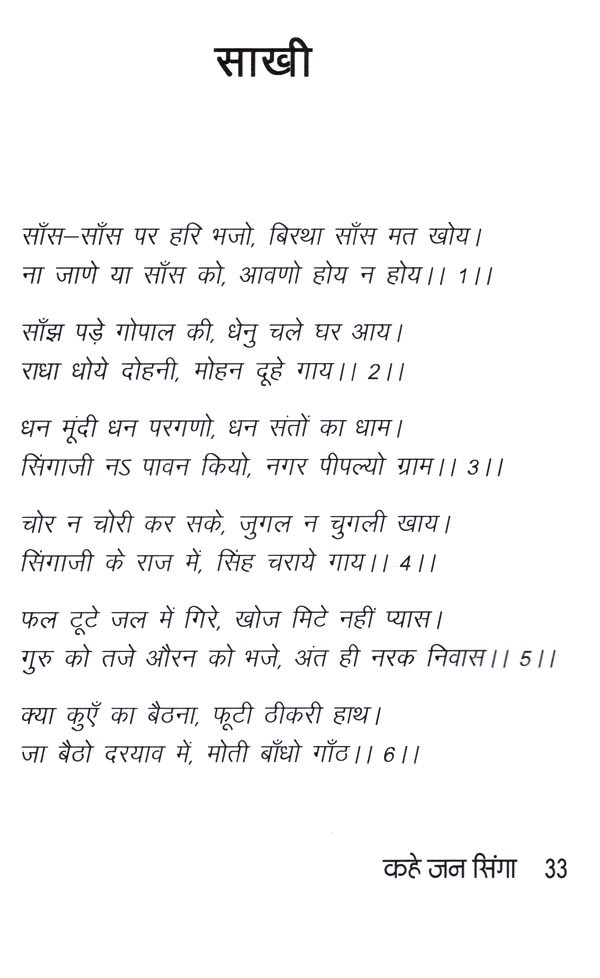 साखी
साँस–साँस पर हरि भजो, बिरथा साँस मत खोय।
ना जाणे या साँस को, आवणो होय न होय।। 1।।
साँझ पड़े गोपाल की, धेनु चले घर आय।
राधा धोये दोहनी, मोहन दूहे गाय।। 2।।
धन मूंदी धन परगणो, धन संतों का धाम।
सिंगाजी नऽ पावन कियो, नगर पीपल्यो ग्राम।। 3।।
चोर न चोरी कर सके, जुगल न चुगली खाय।
सिंगाजी के राज में, सिंह चराये गाय।। 4।।
फल टूटे जल में गिरे, खोज मिटे नहीं प्यास।
गुरु को तजे औरन को भजे, अंत ही नरक निवास।। 5।।
क्या कुएँ का बैठना, फूटी ठीकरी हाथ।
जा बैठो दरयाव में, मोती बाँधो गाँठ।। 6।।
कहे जन सिंगा 33